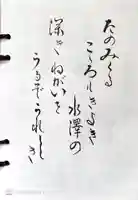 たのみくる
こころしきよき
水澤の
深きねがいを
うるぞうれしき